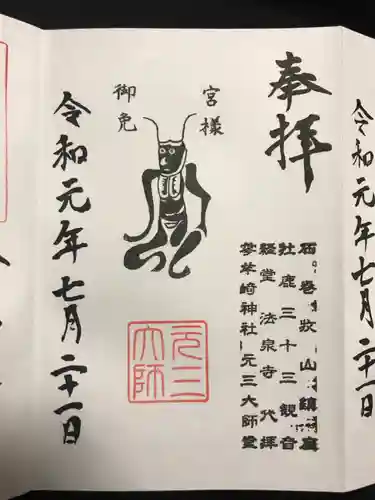 令和元年七月二十一日
奉拝
宮様
御免
石巻牧山鎮座
牡鹿三十三観音
経堂法泉寺代拝
零羊崎神社元三大師堂
元三大師
令和元年七月二十一日